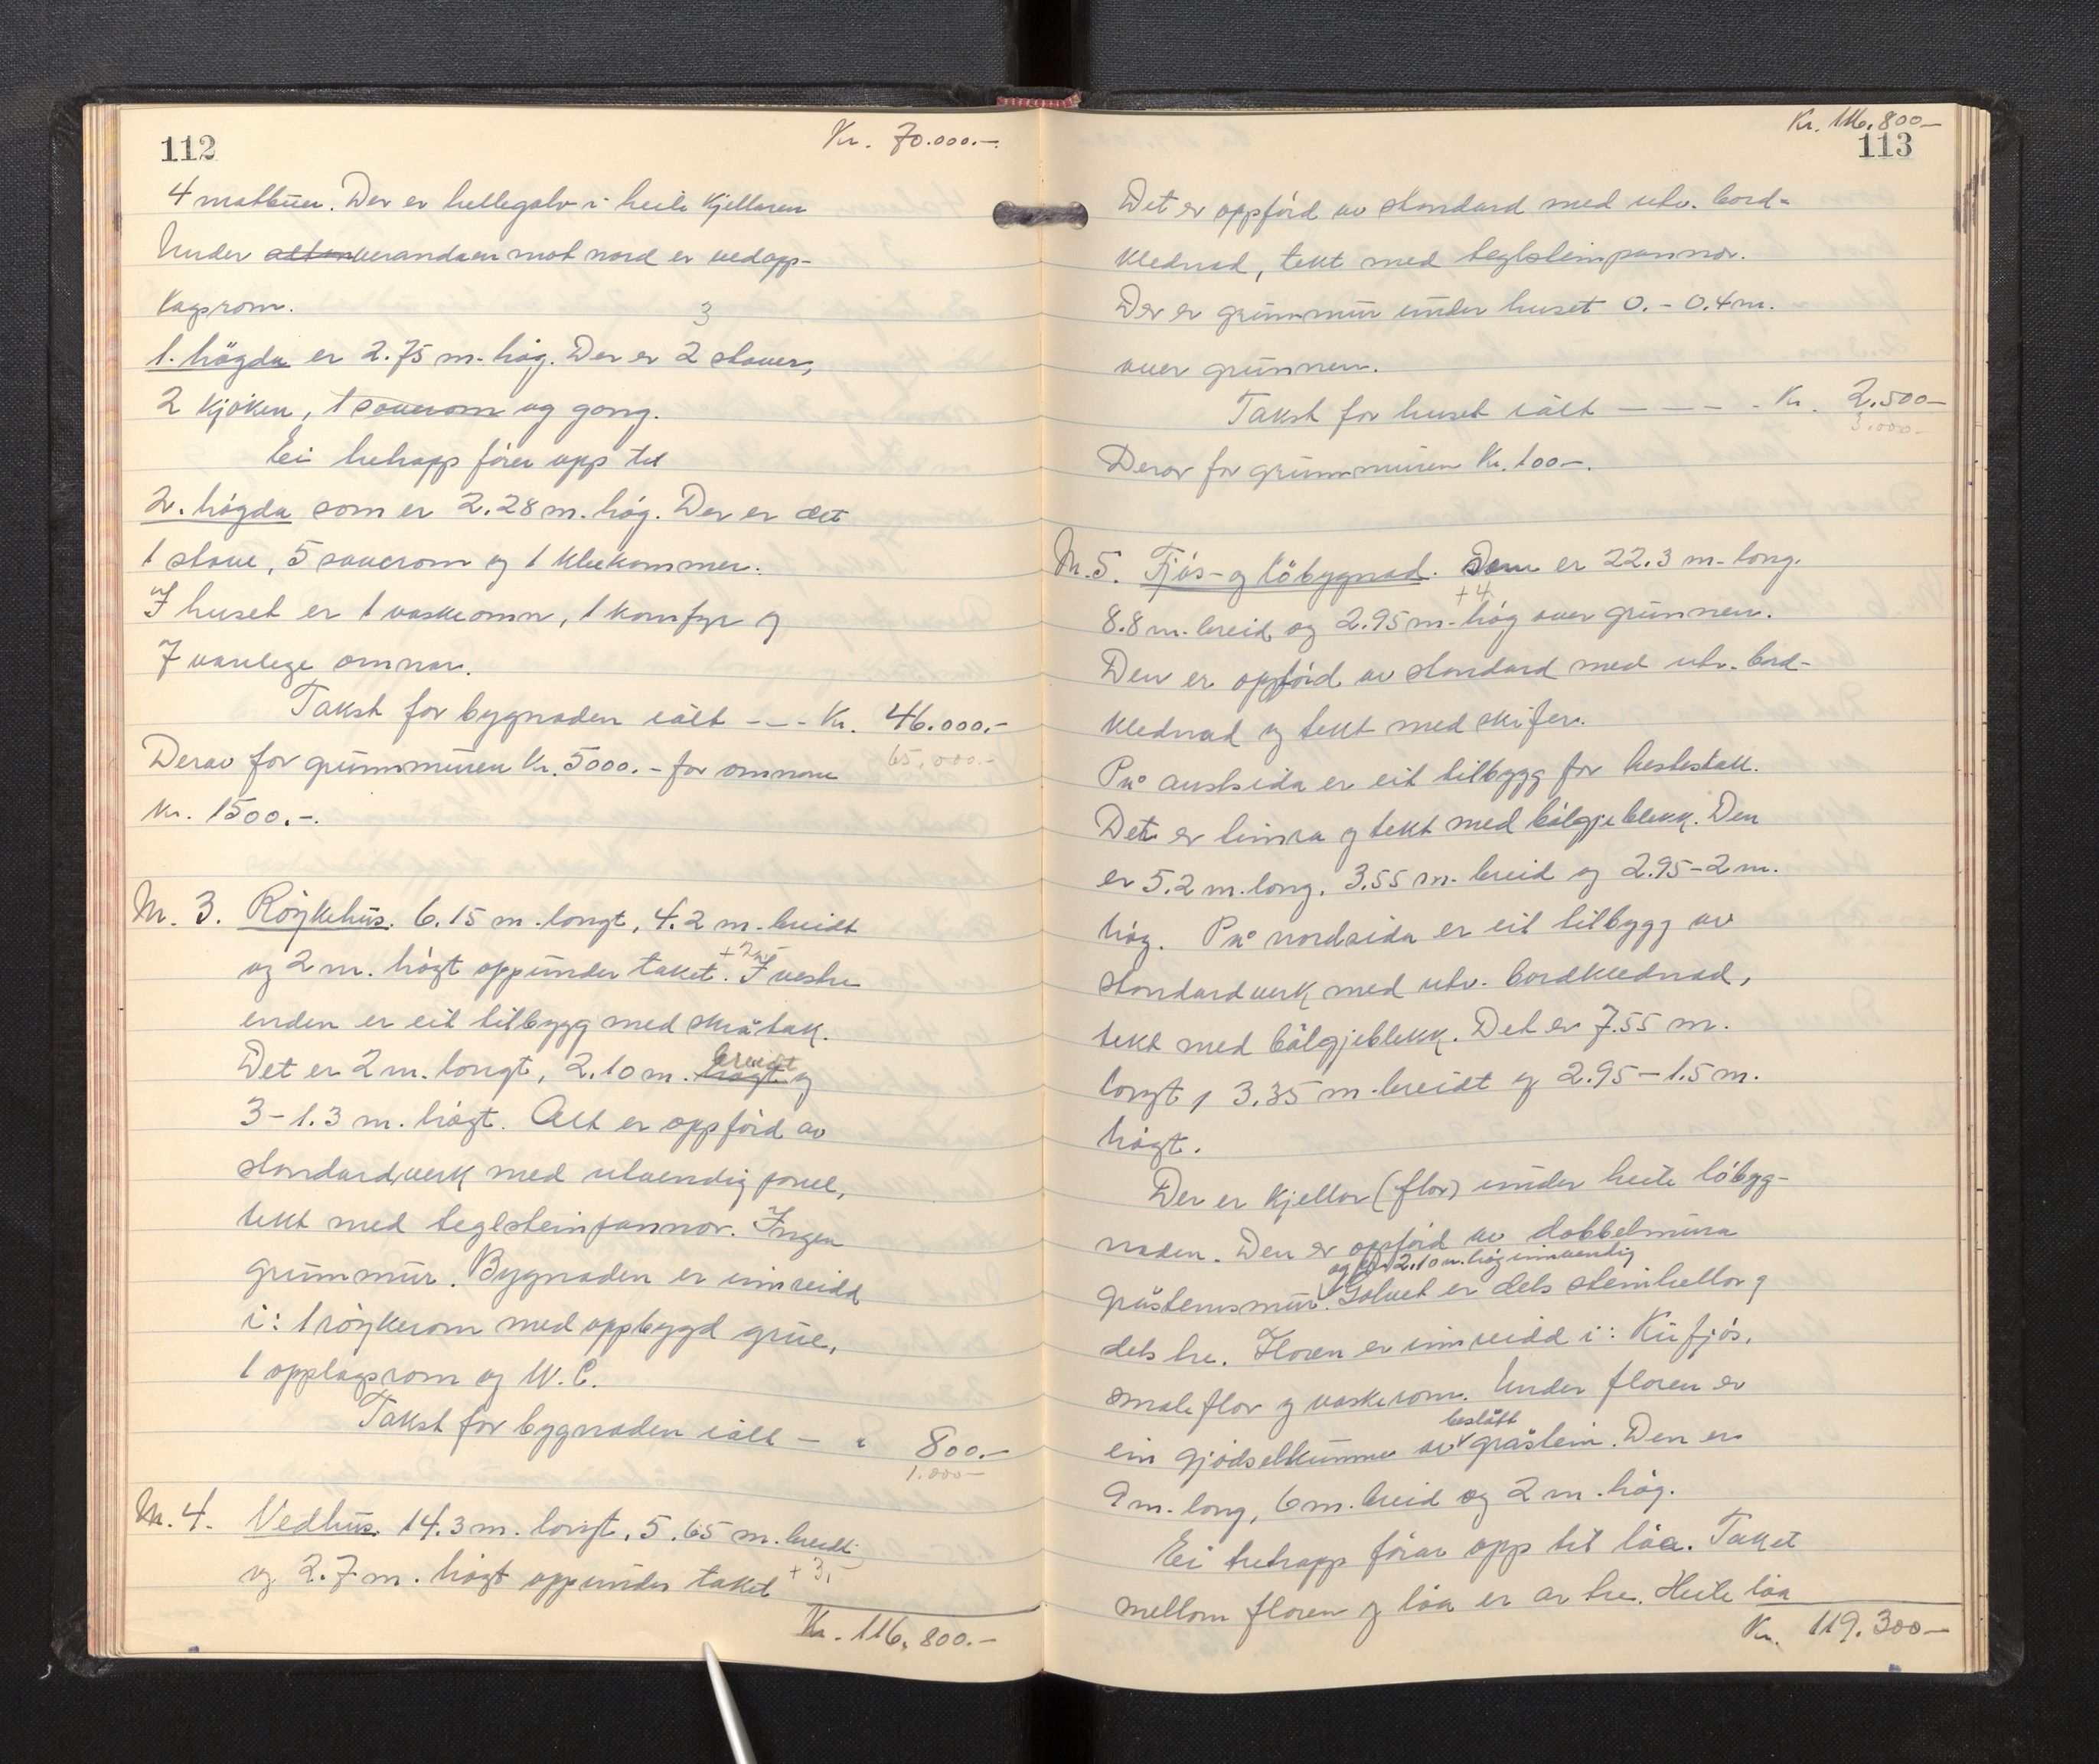 112
Kr. 70.000.-
4 matbuer. Der er hellegolv i heile kjellaren
Under altan verandaen mot nord er vedopp-
lagsrom.
3
1. högda er 2.75 m. høg. Der er 2 stover,
2 kjøken, 1 soverom og gong.
Ei tretrapp fører opp til
2. høgda som er 2.28 m. høg. Der er det
1 stove, 5 soverom og 1 klekammer.
I huset er 1 vaskeomn, 1 komfyr og
7 vanlege omnar.
Takst for bygnaden ialt - - - Kr. 46.000.-
65.000.-
Derav for grunnmuren Kr. 5000.- for omnane
Kr. 1500.-.
Nr. 3. Røykehus. 6.15 m. longt, 4.2 m. breidt
+2m
og 2 m. høgt oppunder taket. I vestre
enden er eit tilbygg med skråtak.
breidt
Det er 2 m. longt, 2.10 m. høgt og
3-1.3 m. høgt. Alt er oppførd av
standardverk med utvendig panel,
tekt med teglsteinpannor. Ingen
grunnmur. Bygnaden er innreidd
i: 1 røykerom med oppbygd grue,
1 opplagsrom og W.C.
Takst for bygnaden ialt - " 800.-
1.000-
Nr. 4. Vedhus. 14.3 m. longt, 5.65 m. breidt
og 2.7 m. høgt oppunder taket +3.-
Kr. 116.800.-
Kr. 116.800-
113
Det er oppførd av standard med utv. bord-
klednad, tekt med teglsteinpannor.
Der er grunnmur under huset 0. - 0.4 m.
over grunnen.
Takst for huset ialt - - - - Kr. 2.500-
3.000-
Derav for grunnmuren Kr. 100-.
Nr. 5. Fjøs- og löbygnad. Den er 22.3 m. long.
+4
8.8 m. breid og 2.95 m. høg over grunnen.
Den er oppførd av standard med utv. bord-
klednad og tekt med skifer.
På austsida er eit tilbygg for hestestall.
Det er limra og tekt med bølgjeblekk. Den
er 5.2 m. long, 3.55 m. breid og 2.95-2 m.
høg. På nordsida er eit tilbygg av
standardverk med utv. bordklednad,
tekt med bølgjeblekk. Det er 7.55 m.
longt, 3.35 m. breidt og 2.95-1.5 m.
høgt.
Der er kjellar (flor) under heile løbyg-
naden. Den er oppførd av dobbelmura
og er 2.10 m. høg innvendig
gråsteinsmur. Golvet er dels steinhellor og
dels tre. Floren er innreidd i: Kufjøs,
smaleflor og vaskerom. Under floren er
beslått
ein gjødselkumme av gråstein. Den er
9 m. long, 6 m. breid og 2 m. høg.
Ei tretrapp førar opp til løa. Taket
mellom floren og løa er av tre. Heile løa
Kr. 119.300-